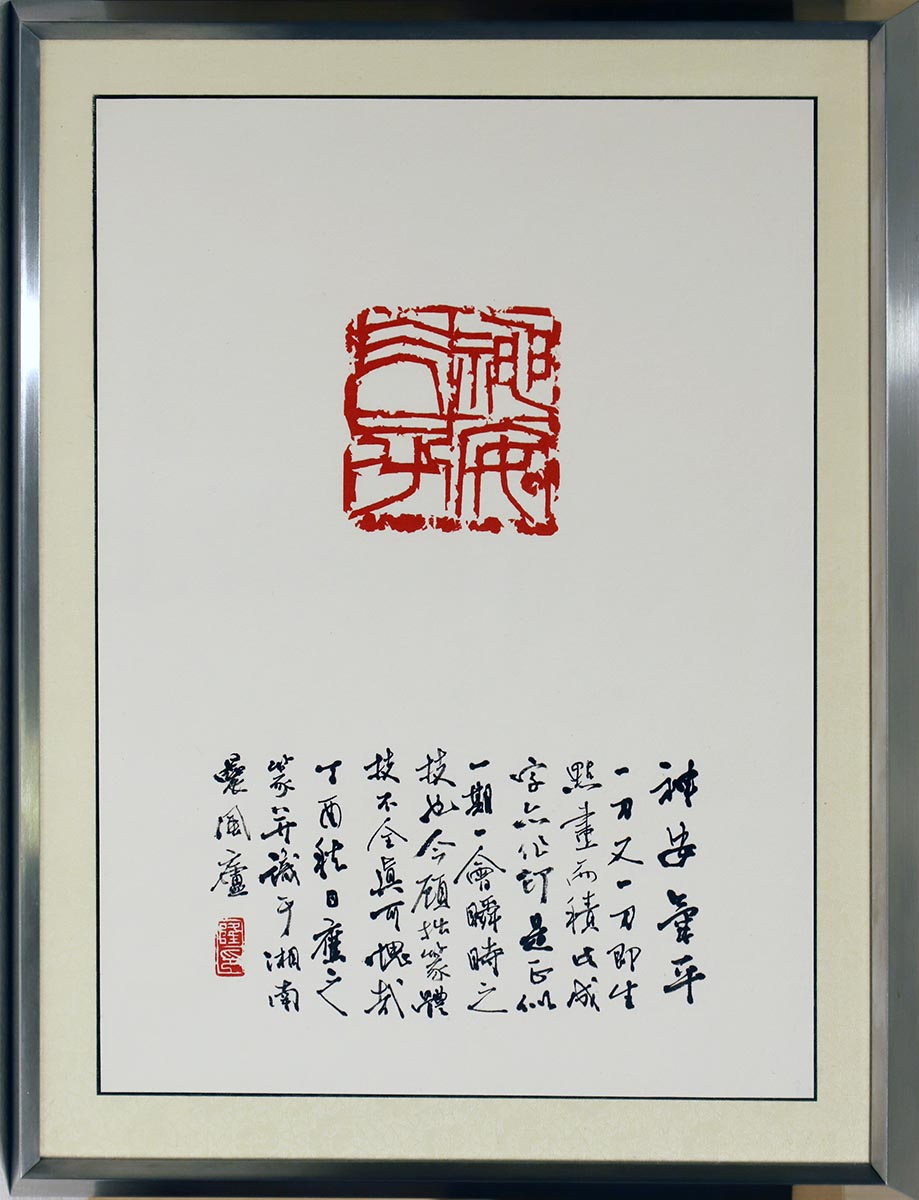 神安氣平
神安氣平
一刀又一刀即生
點畫而積以成
字亦作印是正似
一期一會瞬時之
技也今顧拙篆體
技不全真可愧哉
丁酉秋日應之
篆并識于湘南
風廬
隆印